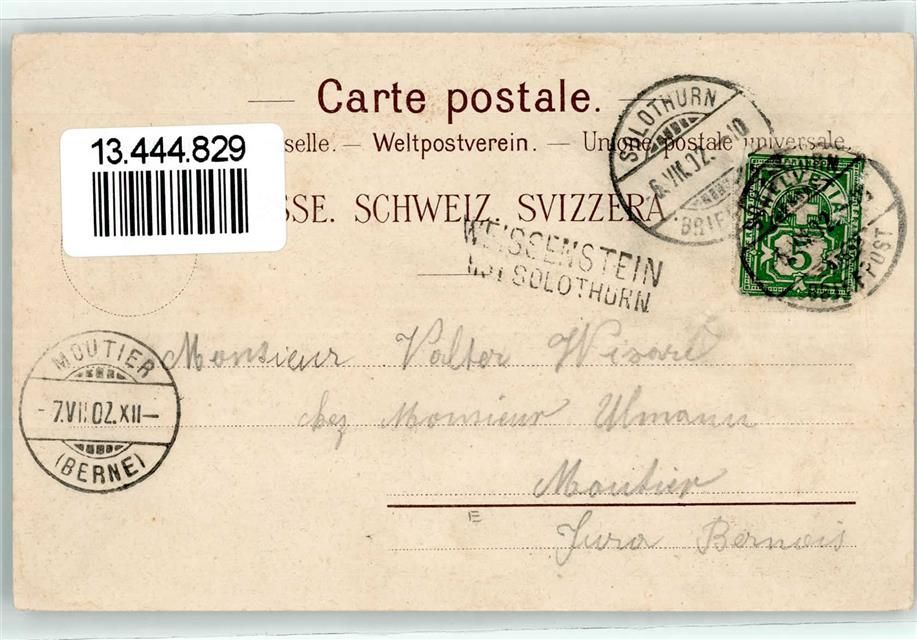 Carte postale.
13.444.829
selle. — Weltpostverein. — Union postale universale.
SSE. SCHWEIZ. SVIZZERA
SOLOTHURN
6.VII.02.
BRIEF
WEISSENSTEIN
bei SOLOTHURN
5
MOUTIER
7.VII.02.XII
(BERNE)
Monsieur Valter Wisard
chez Monsieur Ulmann
Moutier
E
Jura Bernois